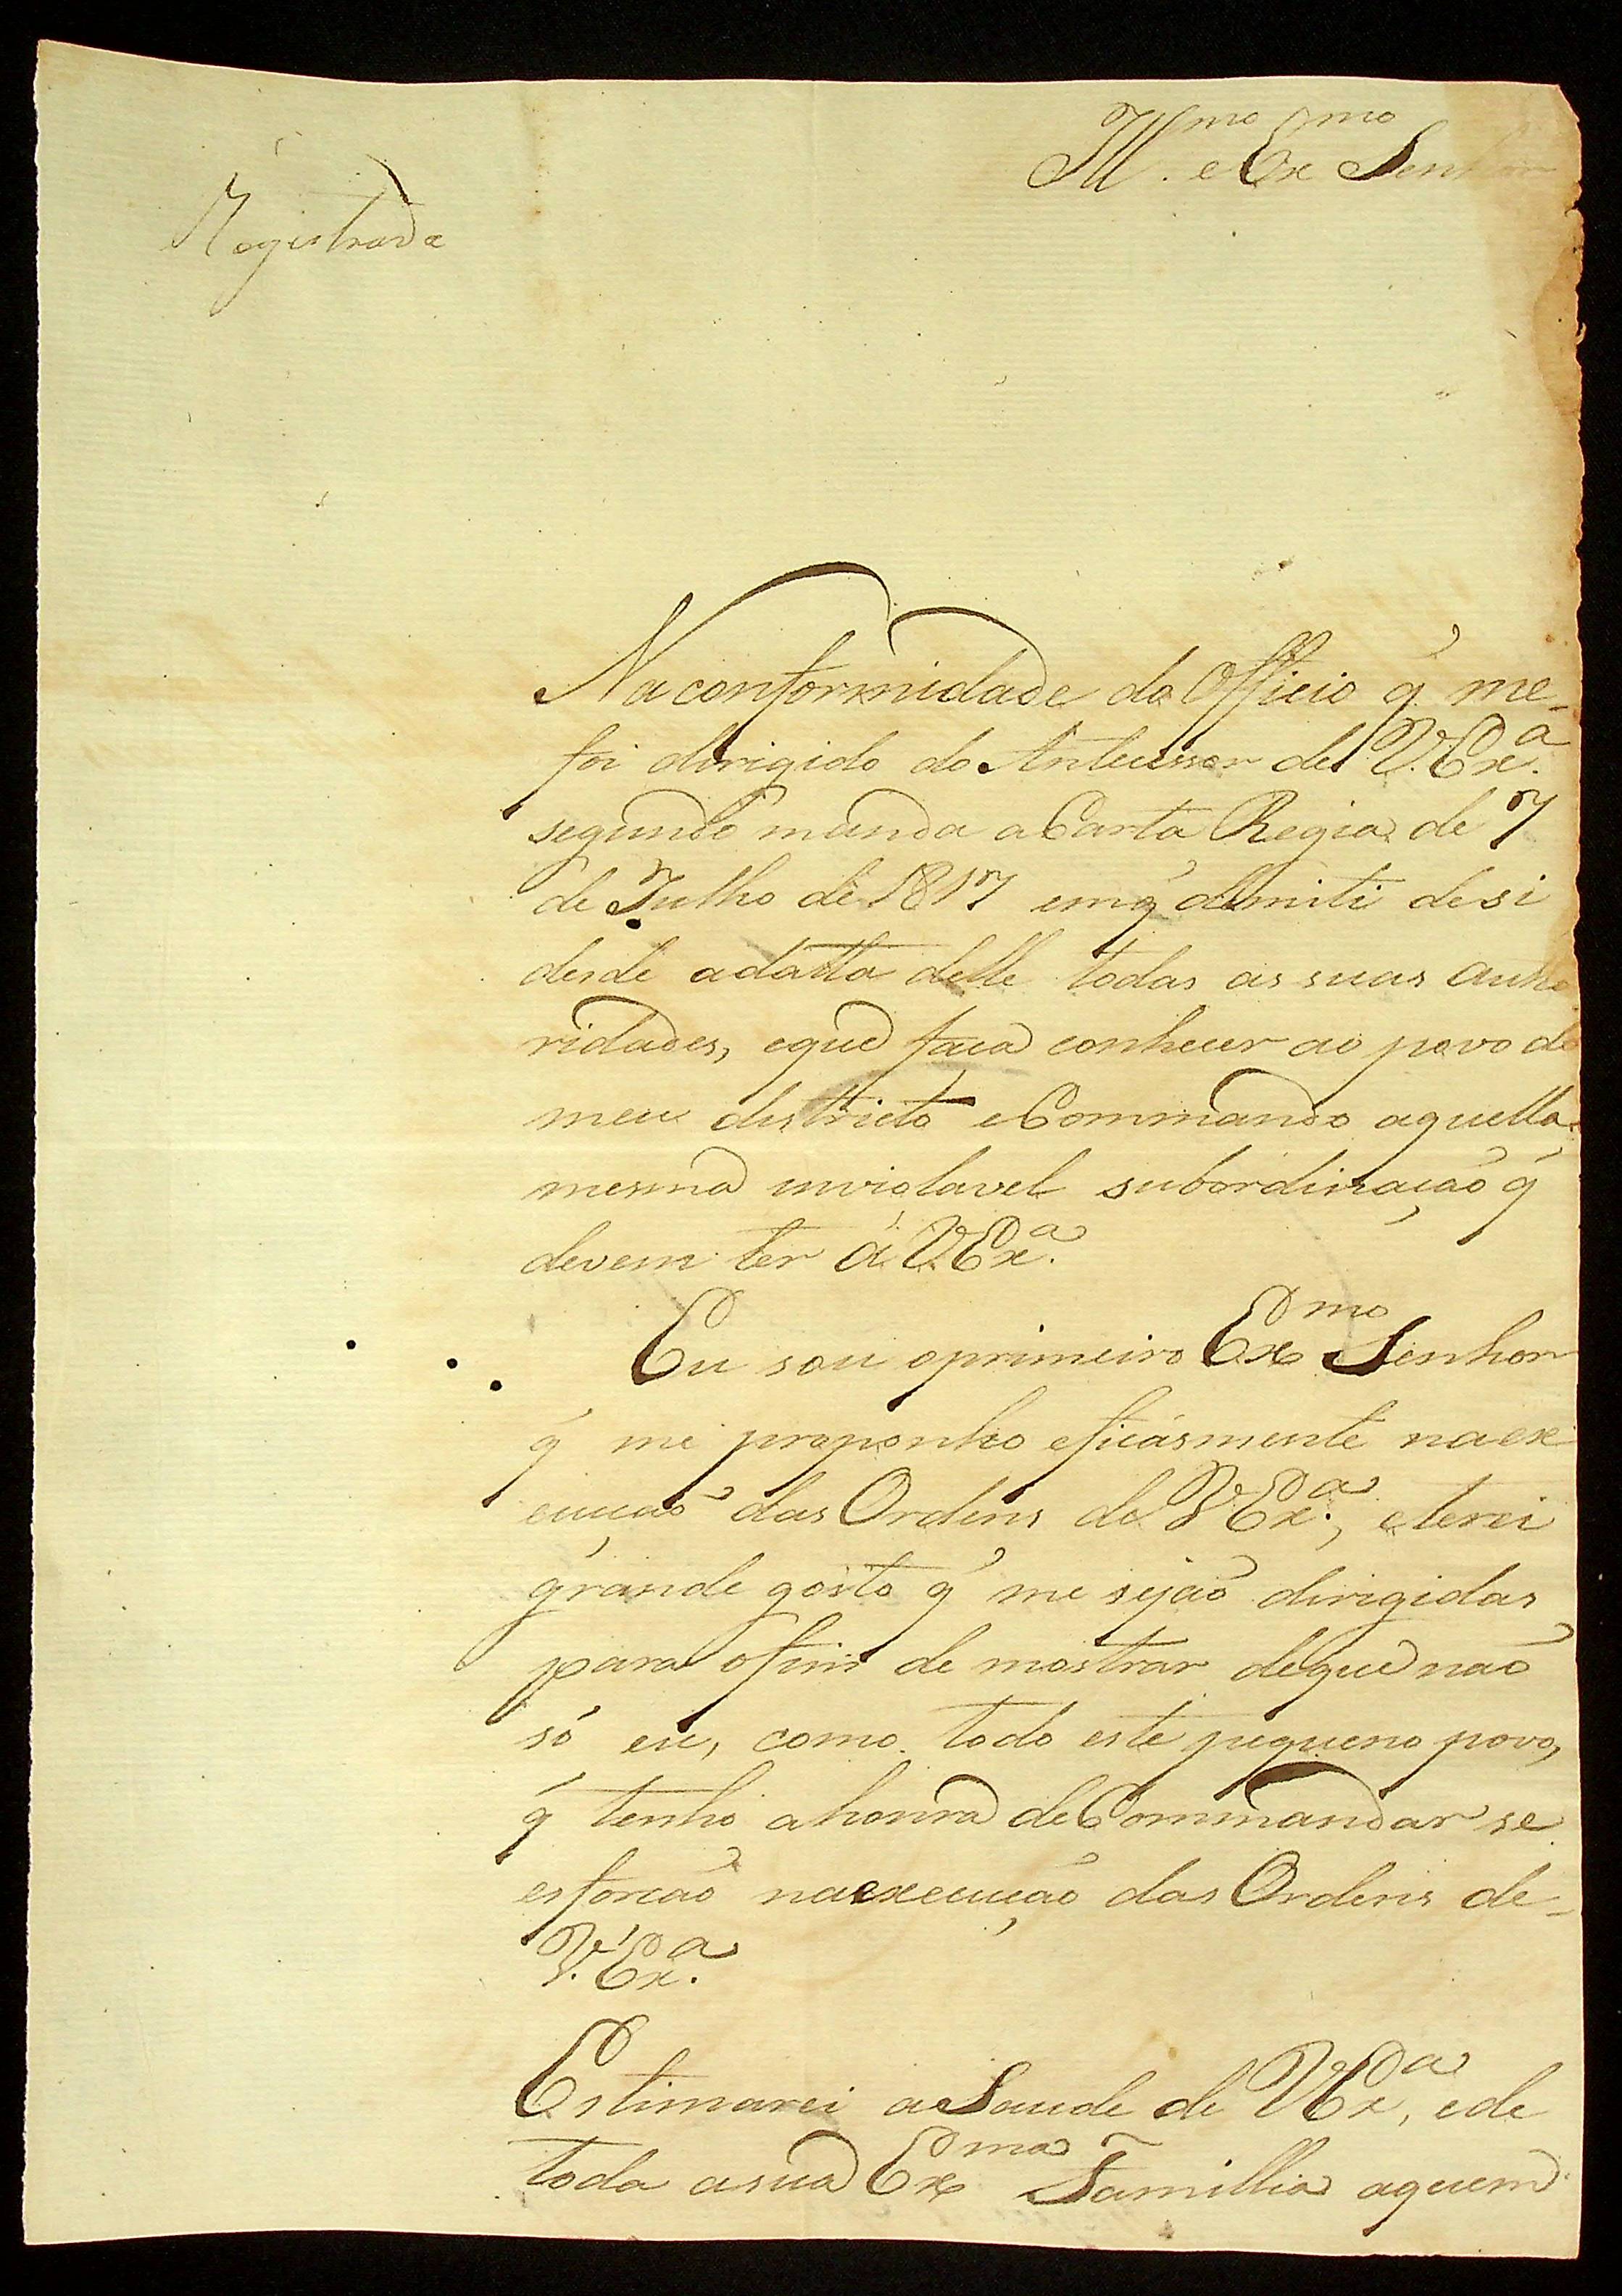 Ill.mo e Ex.mo Senhor
Registrada
Na conformidade do Officio q̃ me-
foi dirigido do Antecessor de V. Ex.a
segundo manda a Carta Regia de 7
de Julho de 1817 em q̃ demiti de si
desde adatta delle todas as suas autho
ridades, eque faça conhecer ao povo do
meu districto eCommando aquella
mesma inviolavel subordinação q̃
devem ter á V. Ex.a
Eu sou oprimeiro Ex.mo Senhor
q̃ me proponho eficásmente na exe
cução das Ordens de V. Ex.a, eterei
grande gosto q̃ me sejão dirigidas
para ofim de mostrar deque não
só eu, como todo este piqueno povo,
q̃ tenho ahonra deCommandar se
esforcão naexecução das Ordens de-
V. Ex.a
Estimarei aSaude de V. Ex.a, ede
toda asua Ex.ma Famillia aquem